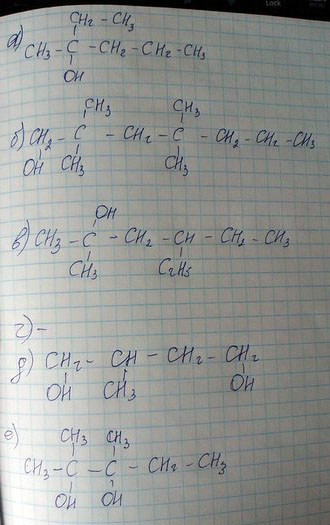 CH₂ – CH₃
а) CH₃ – C – CH₂ – CH₂ – CH₃
OH
CH₃ CH₃
б) CH₂ – C – CH₂ – C – CH₂ – CH₂ – CH₃
OH CH₃ CH₃
OH
в) CH₃ – C – CH₂ – CH – CH₂ – CH₃
CH₃ C₂H₅
г) –
д) CH₂ – CH – CH₂ – CH₂
OH CH₃ OH
е) CH₃ CH₃
CH₃ – C – C – CH₂ – CH₃
OH OH